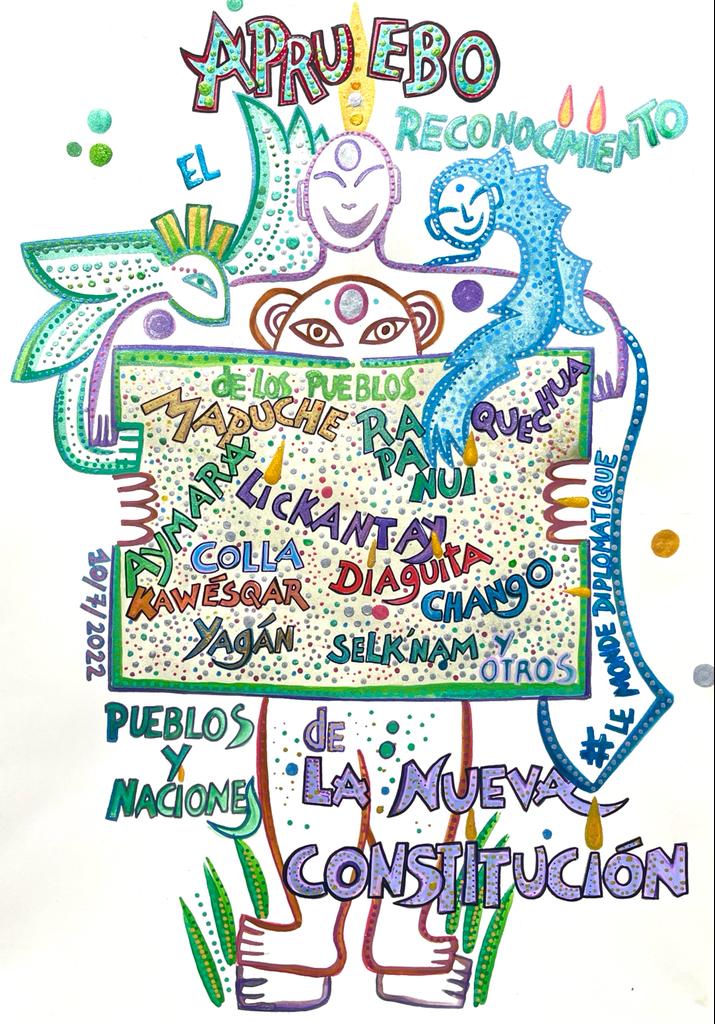 APRUEBO
EL
RECONOCIMIENTO
de LOS PUEBLOS
MAPUCHE
RAPANUI
QUECHUA
AYMARA
LICKANTAY
COLLA
DIAGUITA
KAWÉSQAR
CHANGO
YAGÁN
SELK'NAM
Y OTROS
PUEBLOS
Y
NACIONES
de
LA NUEVA
CONSTITUCIÓN
10/7/2022
# LE MONDE DIPLOMATIQUE